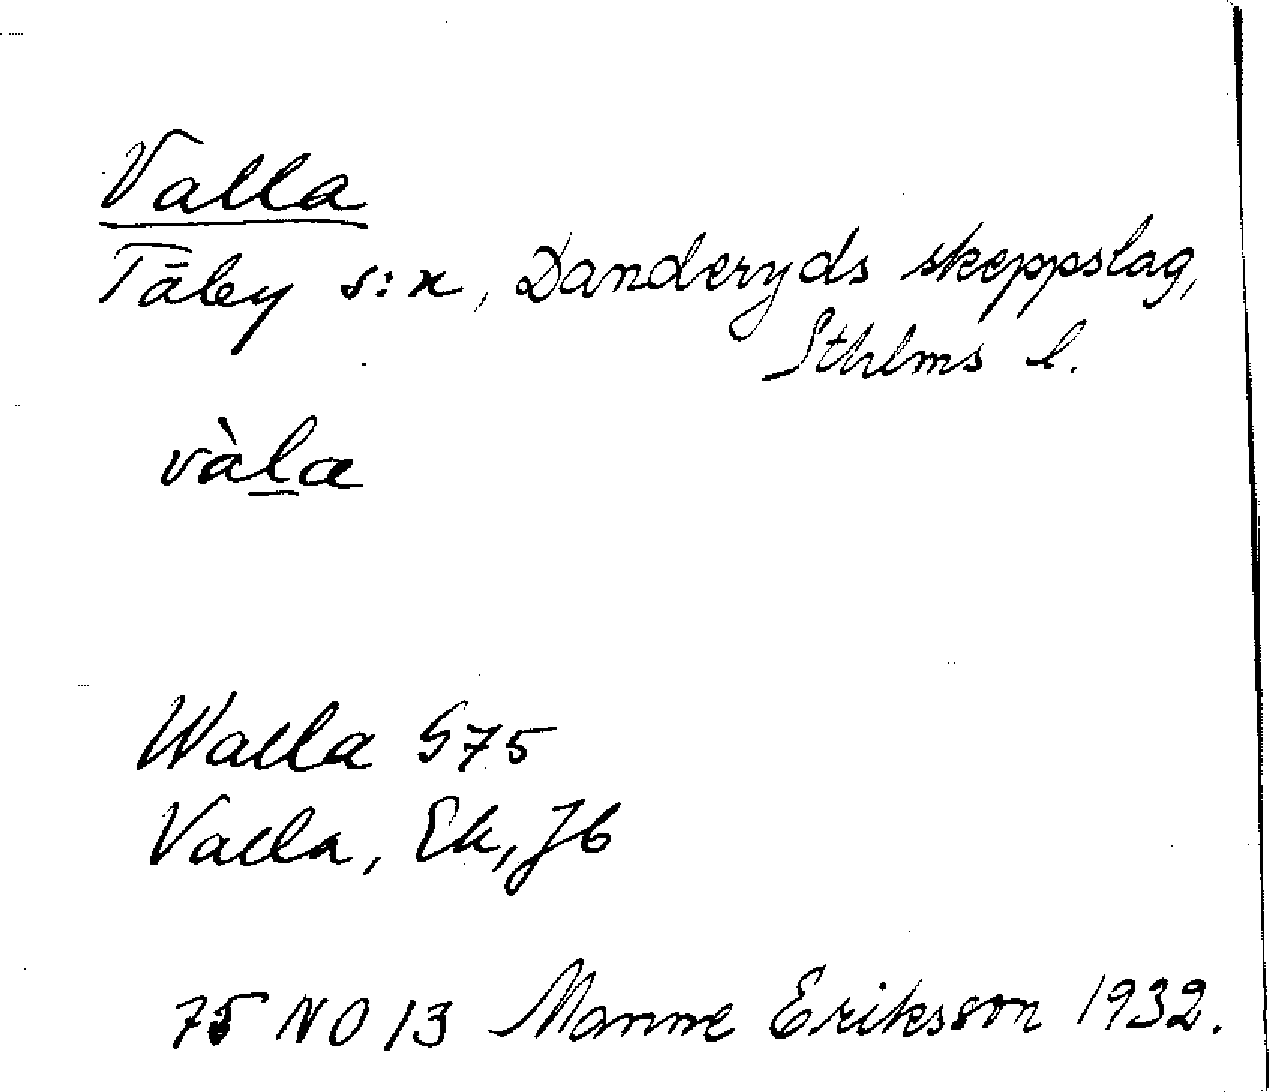 Valla
Täby s:n, Danderyds skeppslag,
Sthlms l.
vàl̲a
Walla S75
Valla, Ek, Jb
75 NO 13 Manne Eriksson 1932.